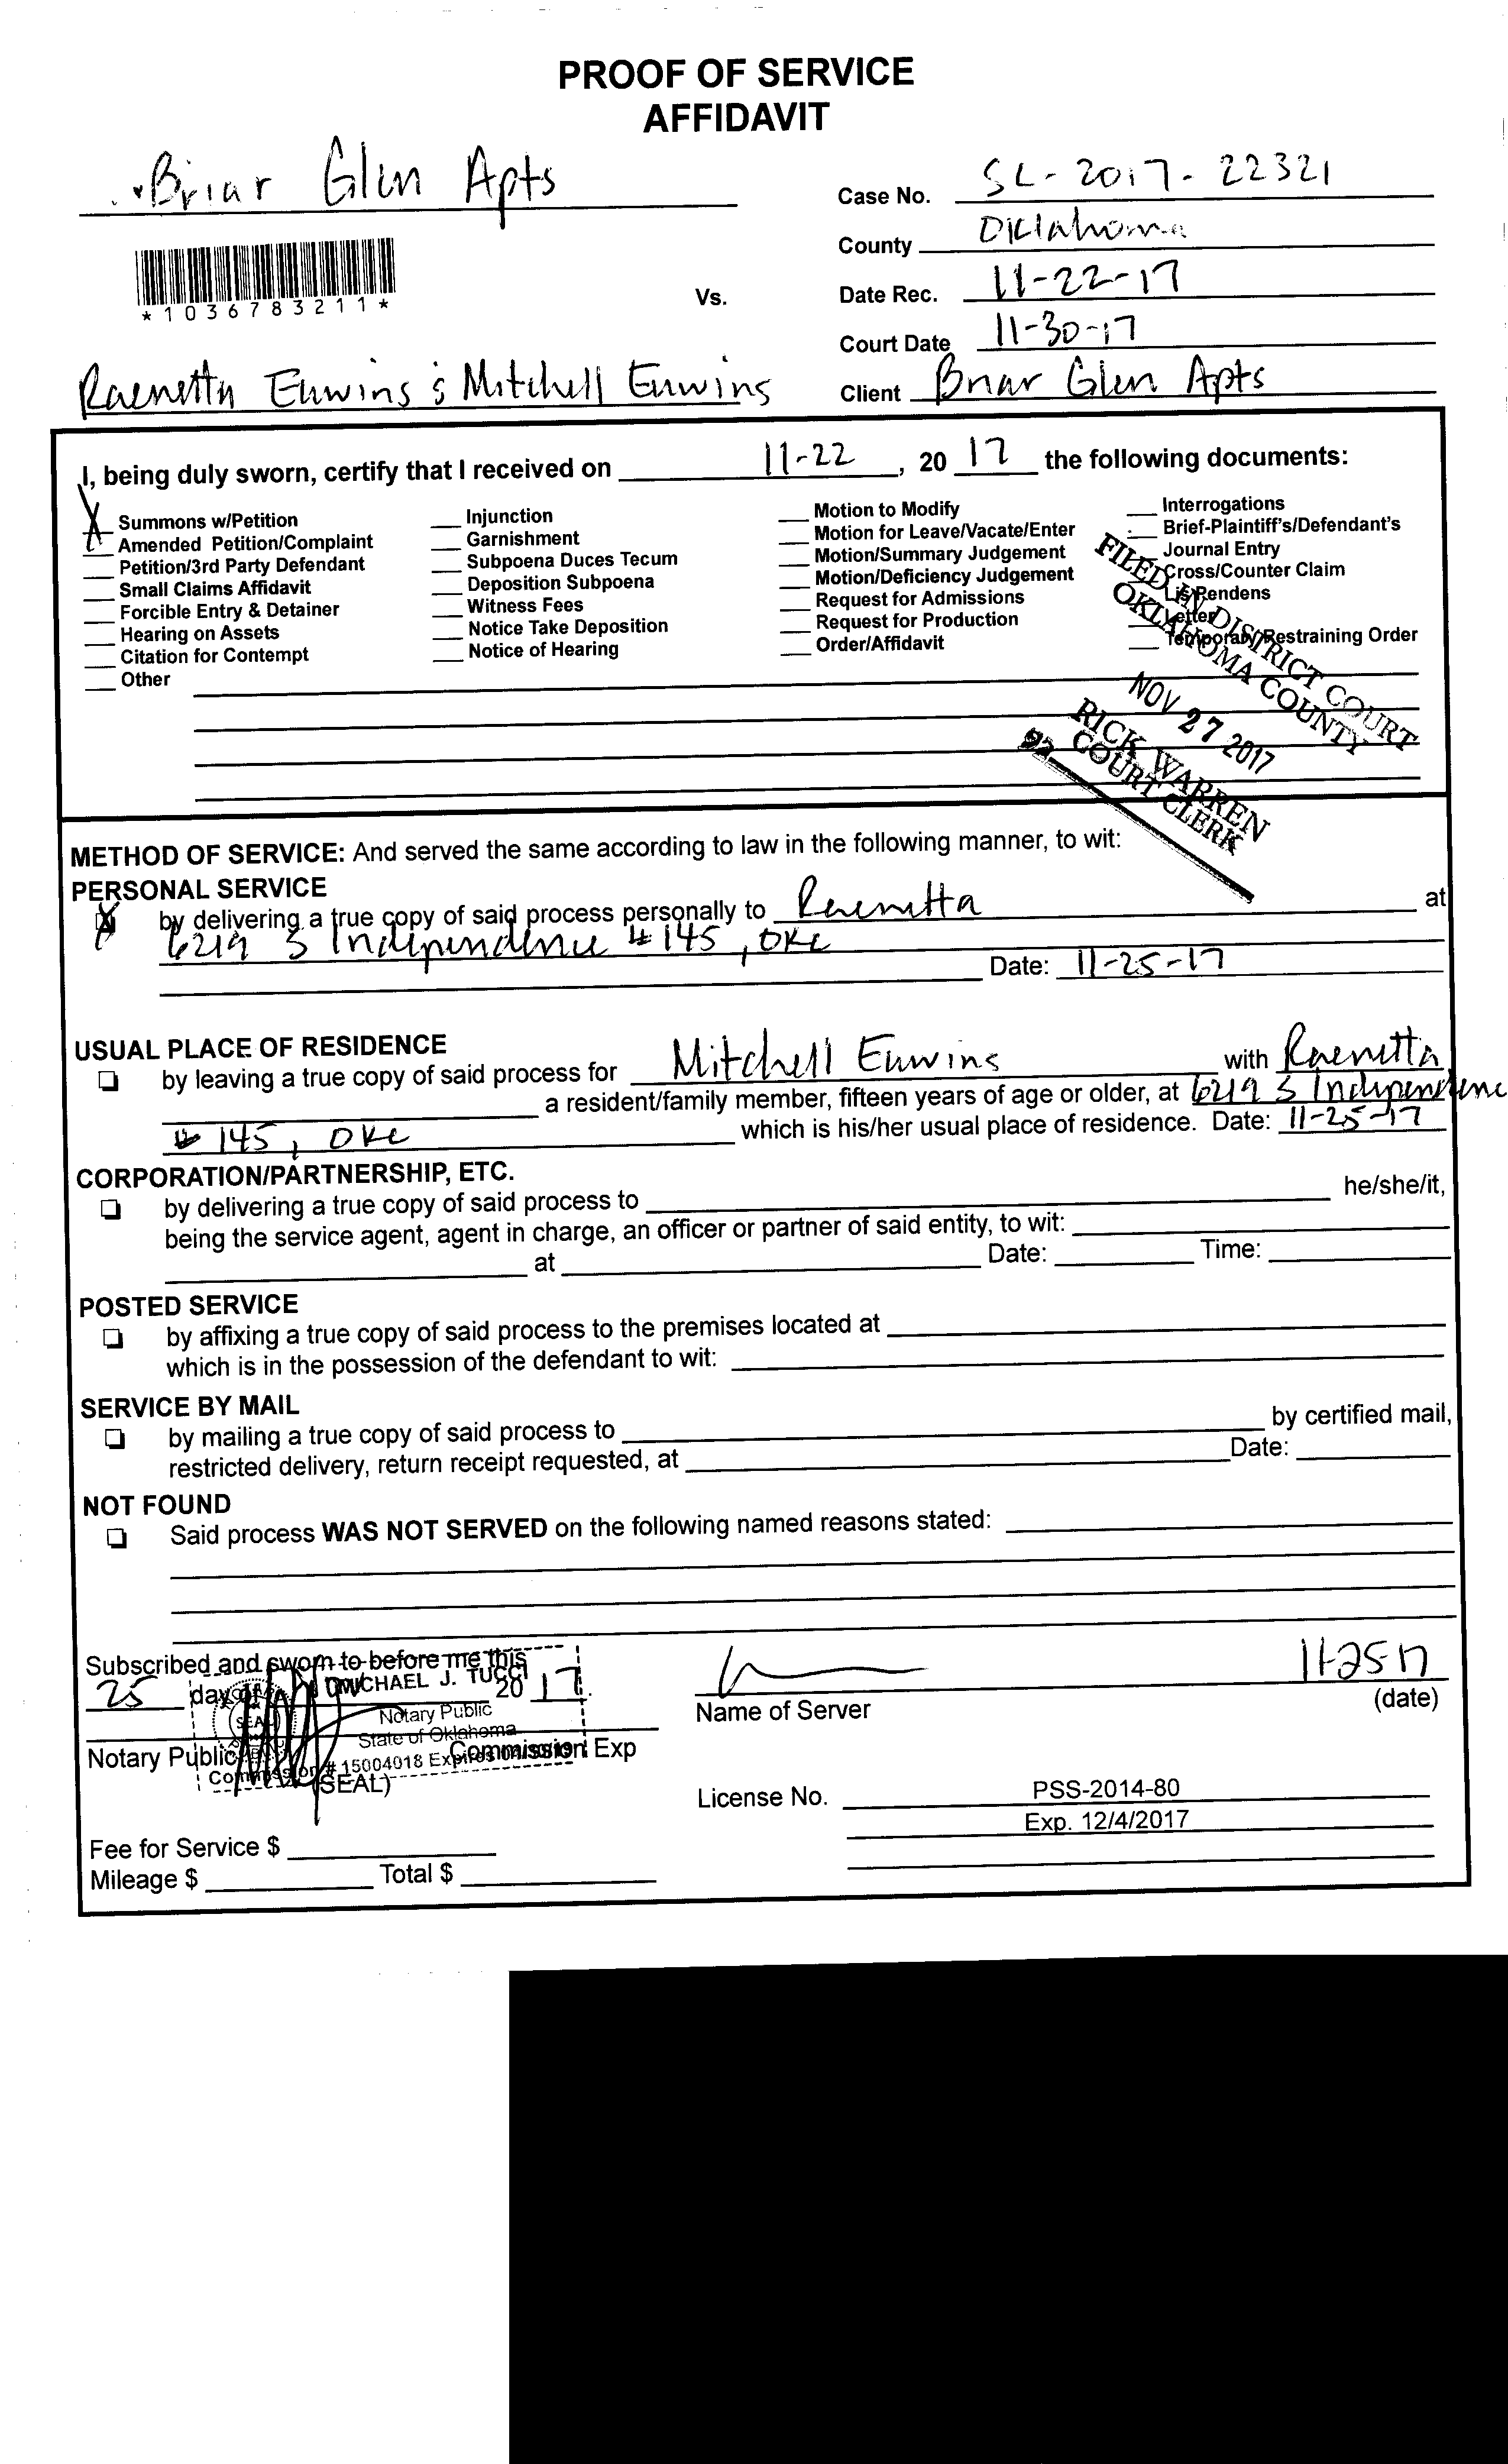 PROOF OF SERVICE
AFFIDAVIT
Briar Glen Apts
Case No. SC-2017-22321
County Oklahoma
*1036783211*
Vs.
Date Rec. 11-22-17
Court Date 11-30-17
Raenetta Enwins & Mitchell Enwins
Client Briar Glen Apts
I, being duly sworn, certify that I received on 11-22, 20 17 the following documents:
X Summons w/Petition
Amended Petition/Complaint
Petition/3rd Party Defendant
Small Claims Affidavit
Forcible Entry & Detainer
Hearing on Assets
Citation for Contempt
Other
Injunction
Garnishment
Subpoena Duces Tecum
Deposition Subpoena
Witness Fees
Notice Take Deposition
Notice of Hearing
Motion to Modify
Motion for Leave/Vacate/Enter
Motion/Summary Judgement
Motion/Deficiency Judgement
Request for Admissions
Request for Production
Order/Affidavit
Interrogations
Brief-Plaintiff's/Defendant's
Journal Entry
Cross/Counter Claim
Lis Pendens
Letter
Temporary Restraining Order
FILED IN DISTRICT COURT
OKLAHOMA COUNTY
NOV 27 2017
RICK WARREN
COURT CLERK
METHOD OF SERVICE: And served the same according to law in the following manner, to wit:
PERSONAL SERVICE
X by delivering a true copy of said process personally to Raenetta at
6219 S Independence #145, OKC
Date: 11-25-17
USUAL PLACE OF RESIDENCE
by leaving a true copy of said process for Mitchell Enwins with Raenetta
a resident/family member, fifteen years of age or older, at 6219 S Independence
#145, OKC which is his/her usual place of residence. Date: 11-25-17
CORPORATION/PARTNERSHIP, ETC.
by delivering a true copy of said process to he/she/it,
being the service agent, agent in charge, an officer or partner of said entity, to wit:
at Date: Time:
POSTED SERVICE
by affixing a true copy of said process to the premises located at
which is in the possession of the defendant to wit:
SERVICE BY MAIL
by mailing a true copy of said process to by certified mail,
restricted delivery, return receipt requested, at Date:
NOT FOUND
Said process WAS NOT SERVED on the following named reasons stated:
Subscribed and sworn to before me this
25 day of Nov 20 17.
MICHAEL J. TUCCI
Notary Public
State of Oklahoma
Commission # 15004018 Expires
SEAL
Notary Public Commission Exp
(SEAL)
11-25-17
Name of Server (date)
License No. PSS-2014-80
Exp. 12/4/2017
Fee for Service $
Mileage $ Total $